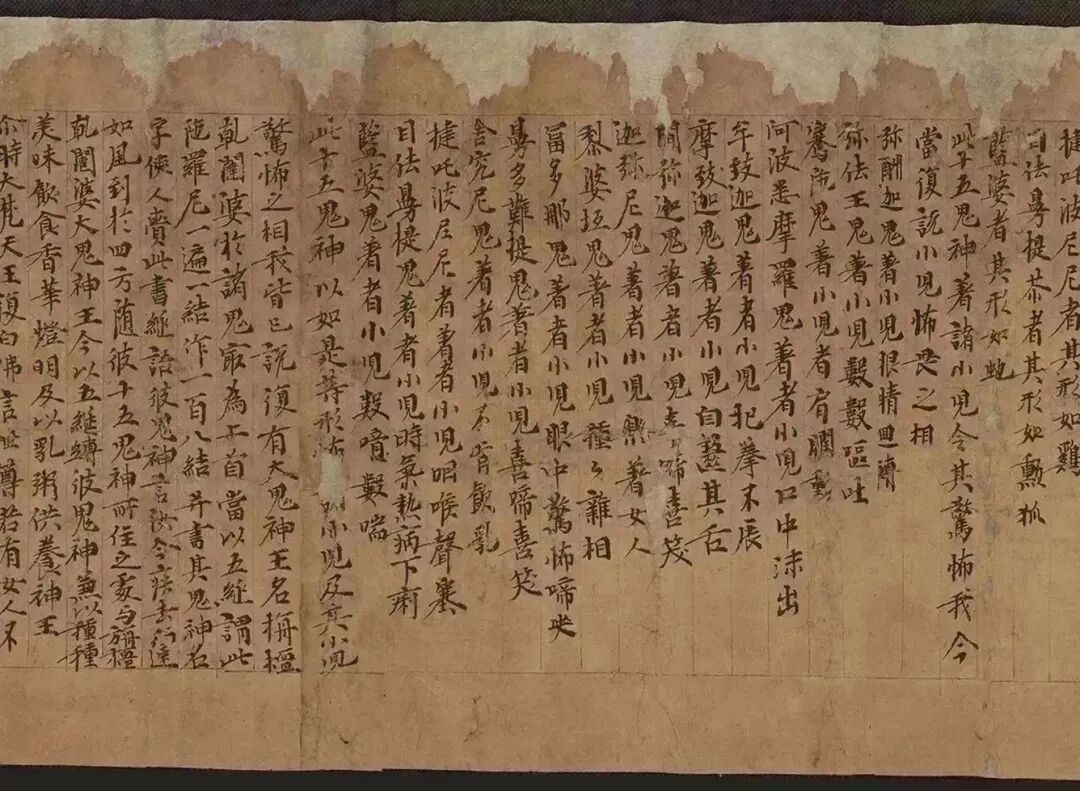 揵吒波尼尼者其形如雞
目佉曼提荼者其形如勳狐
藍婆者其形如虵
此十五鬼神著諸小兒令其驚怖我今
當復説小兒怖畏之相
弥酬迦鬼著小兒眼精迴
弥佉王鬼著者小兒數數嘔吐
騫陁鬼著小兒者肩
阿波悉摩羅鬼著者小兒口中沫出
牟致迦鬼著者小兒把拳不展
摩致迦鬼著者小兒自齧其舌
閻弥迦鬼著者小兒喜啼喜笑
迦弥尼鬼著者小兒樂著女人
黎婆坻鬼著者小兒種々雜相
冨多那鬼著者小兒眼中驚怖啼哭
曼多難提鬼著者小兒喜啼喜笑
舍究尼鬼著者小兒不肯飲乳
揵吒波尼尼者著者小兒咽喉聲塞
目佉曼提鬼著者小兒時氣熱病下痢
藍婆鬼著者小兒數噫數喘
此十五鬼神以如是等形怖小兒及其小兒
驚怖之相我皆已説復有大鬼神王名栴檀
乹闥婆於諸鬼㝡為上首當以五綖謂此
陁羅尼一遍一結作一百八結并書其鬼神名
字使人賫此書綖語彼鬼神言汝今疾去行
如風到於四方随彼十五鬼神所住之處与栴檀
乹闥婆大鬼神王令以五綖縛彼鬼神兼以種種
美味飲食香華燈明及以乳粥供養神王
尒時大梵天王復白佛言世尊若有女人不